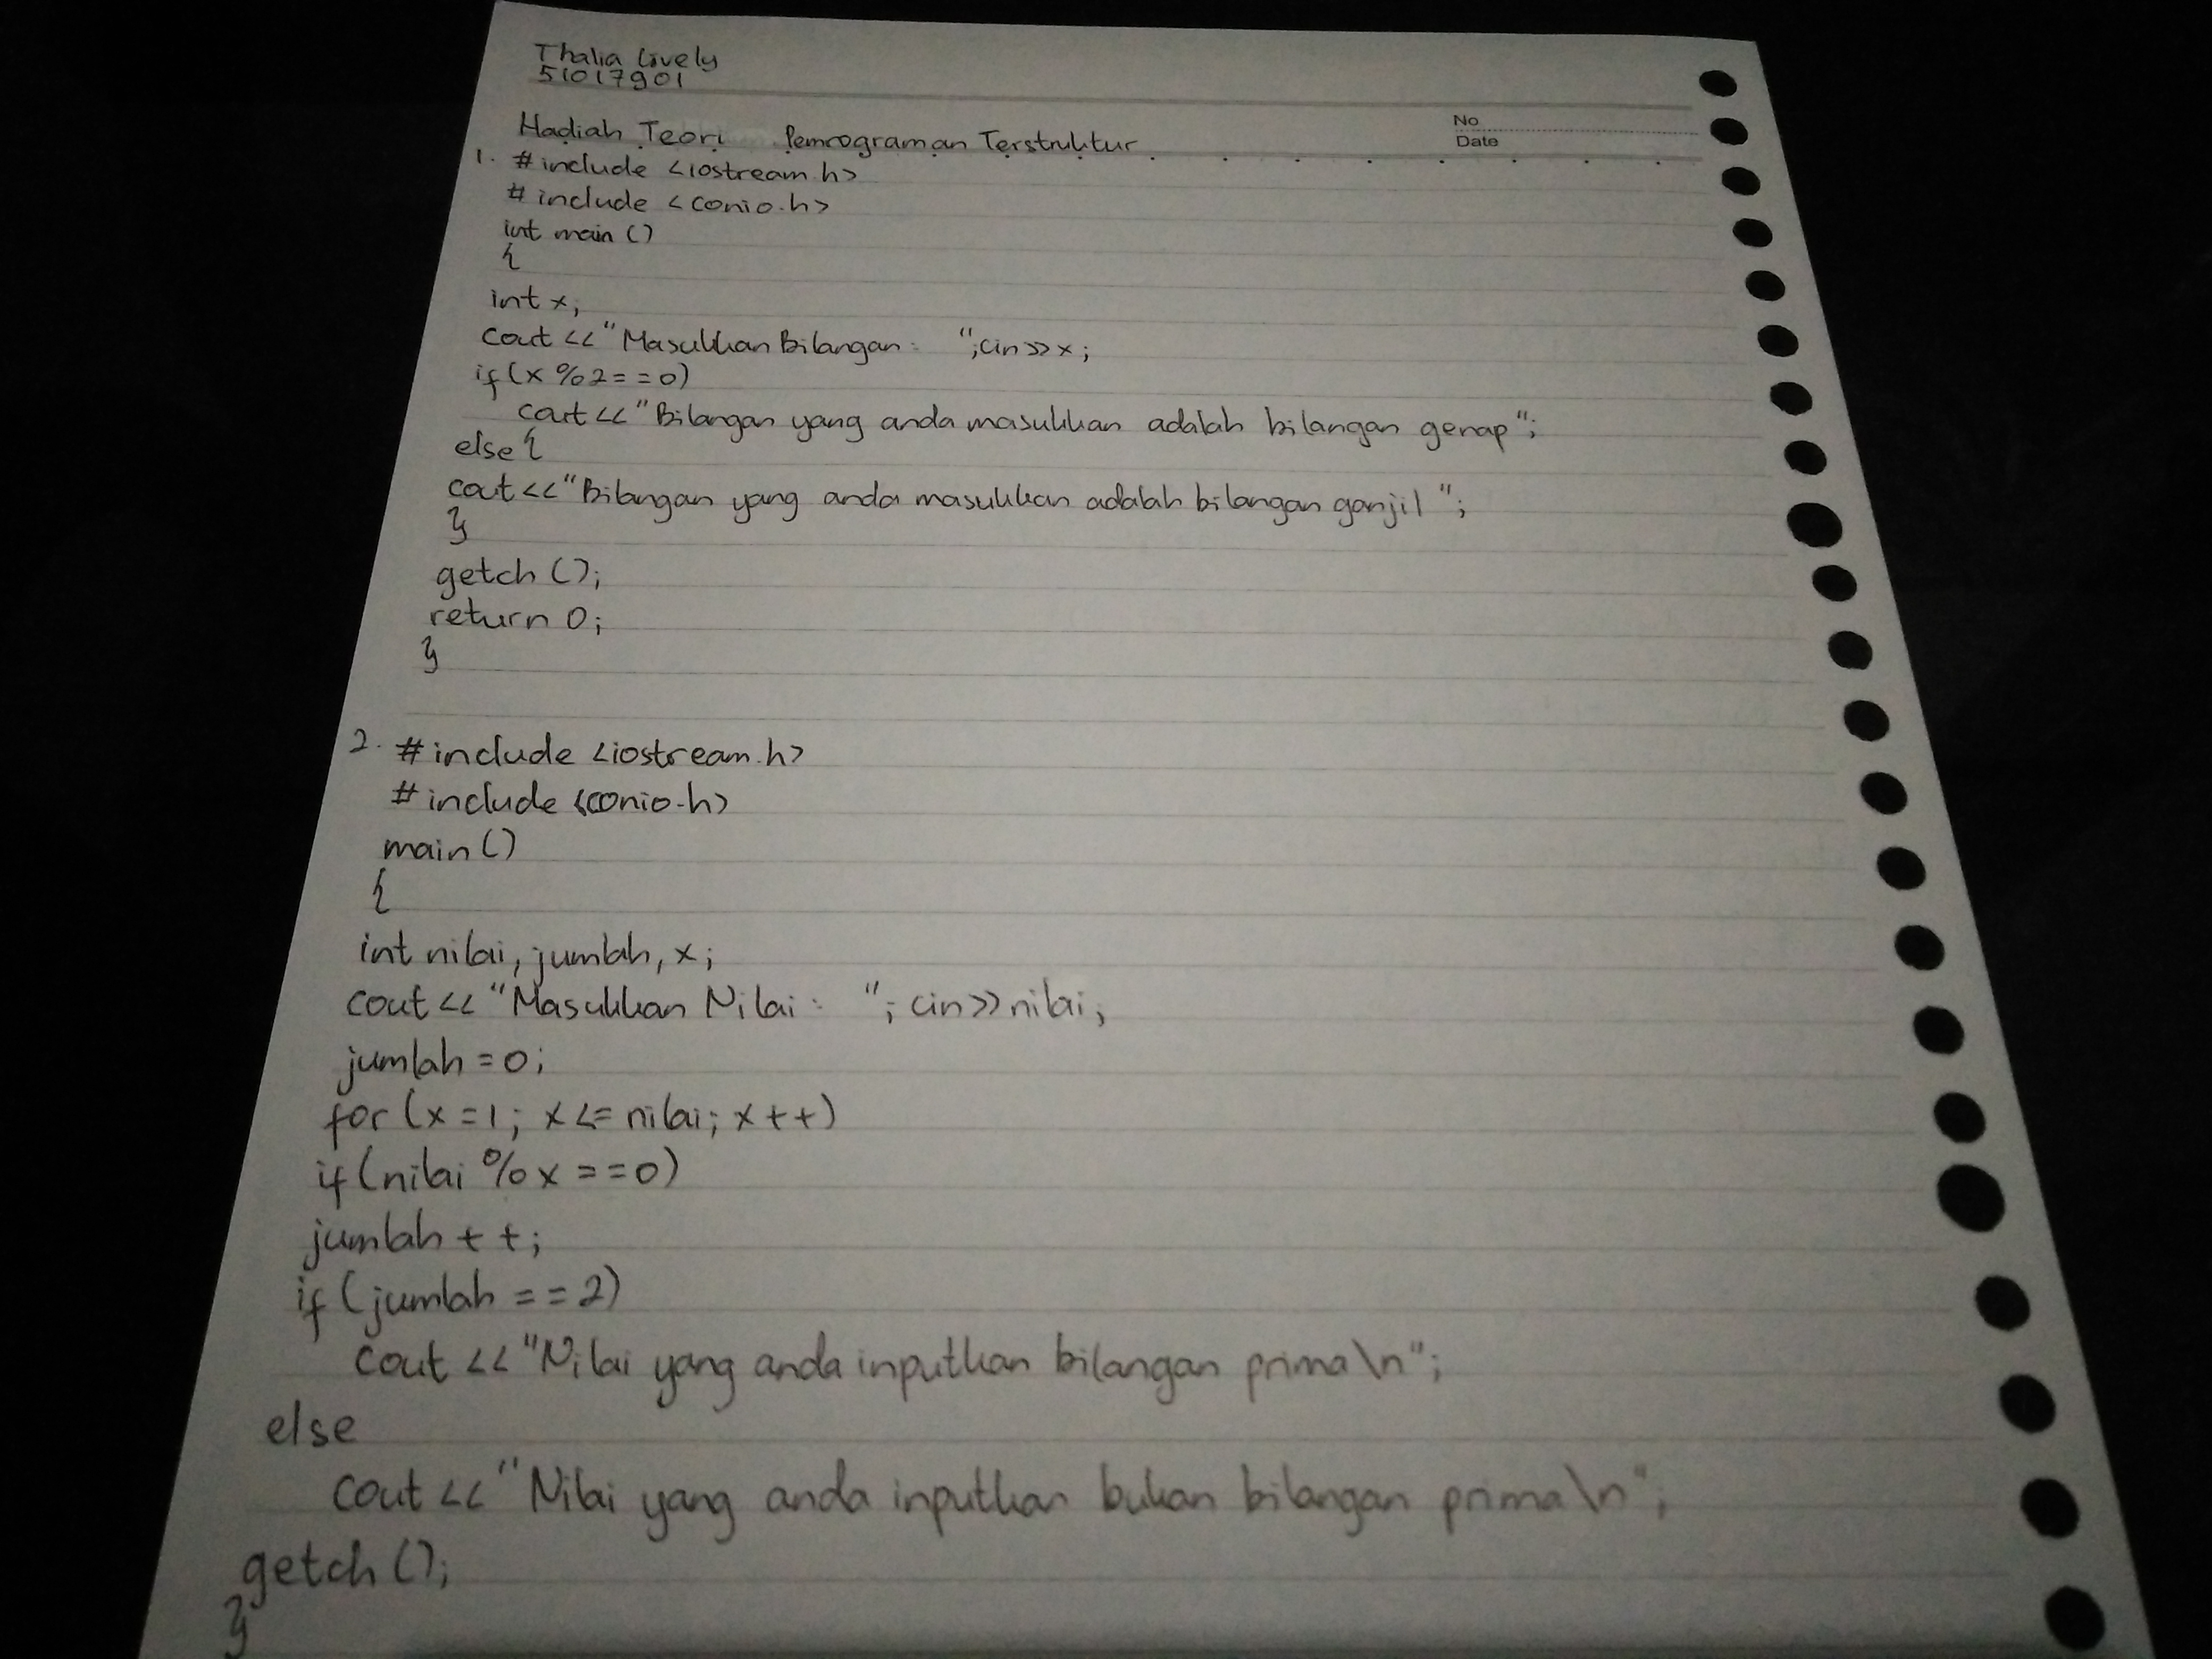 Thalia Lively
51017901
Hadiah Teori Pemrograman Terstruktur
No
Date
1. #include <iostream.h>
#include <conio.h>
int main ()
{
int x;
cout << "Masukkan Bilangan : "; cin >> x;
if (x % 2 == 0)
cout << "Bilangan yang anda masukkan adalah bilangan genap";
else {
cout << "Bilangan yang anda masukkan adalah bilangan ganjil ";
}
getch ();
return 0;
}
2. #include <iostream.h>
#include <conio.h>
main ()
{
int nilai, jumlah, x;
cout << "Masukkan Nilai : "; cin >> nilai;
jumlah = 0;
for (x = 1; x <= nilai; x ++)
if (nilai % x == 0)
jumlah ++;
if (jumlah == 2)
cout << "Nilai yang anda inputkan bilangan prima \n";
else
cout << "Nilai yang anda inputkan bukan bilangan prima \n";
getch ();
}